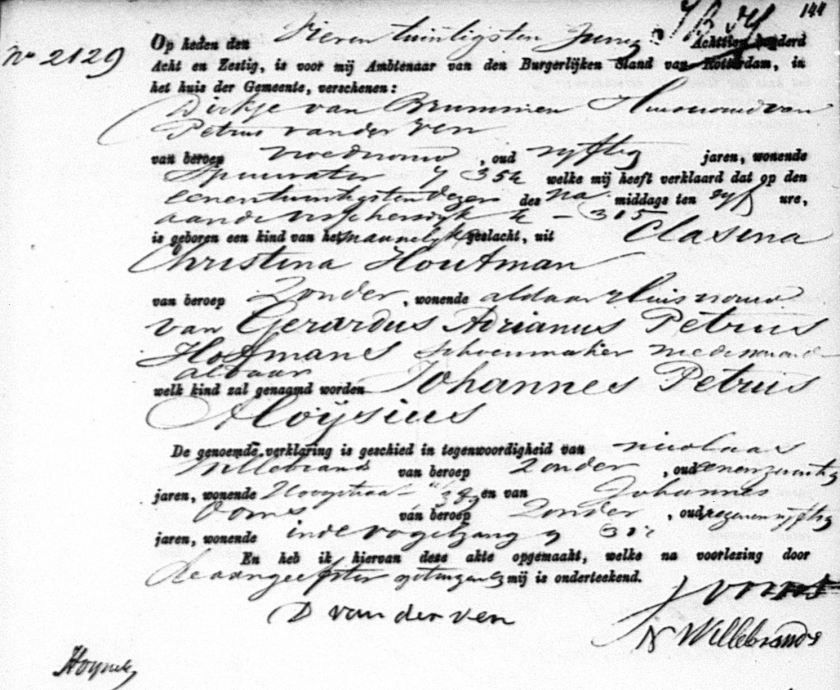 141
No 2129
Op heden den Vierentwintigsten Juny Achttien honderd
Acht en Zestig, is voor mij Ambtenaar van den Burgerlijken Stand van Rotterdam, in
het huis der Gemeente, verschenen:
Dirkje van Brummen Huisvrouw van
Petrus van der Ven
van beroep vroedvrouw, oud vyftig jaren, wonende
Spuiwater 352 welke mij heeft verklaard dat op den
eenentwintigsten dezer des na middags ten vyf ure,
aan de 315
is geboren een kind van het mannelyk geslacht, uit Clasina
Christina Houtman
van beroep Zonder, wonende aldaar huisvrouw
van Gerardus Adrianus Petrus
Hoffmans schoenmaker mede wonende
aldaar
welk kind zal genaamd worden Johannes Petrus
Aloijsius
De genoemde verklaring is geschied in tegenwoordigheid van Nicolaas
Willebrands van beroep Zonder, oud
jaren, wonende Hoogstraat en van Johannes
Ooms van beroep Zonder, oud negenenvyftig
jaren, wonende in de Vogelzang
En heb ik hiervan deze akte opgemaakt, welke na voorlezing door
de aangeefster getuigen en mij is onderteekend.
J Ooms
D van der ven
N Willebrands